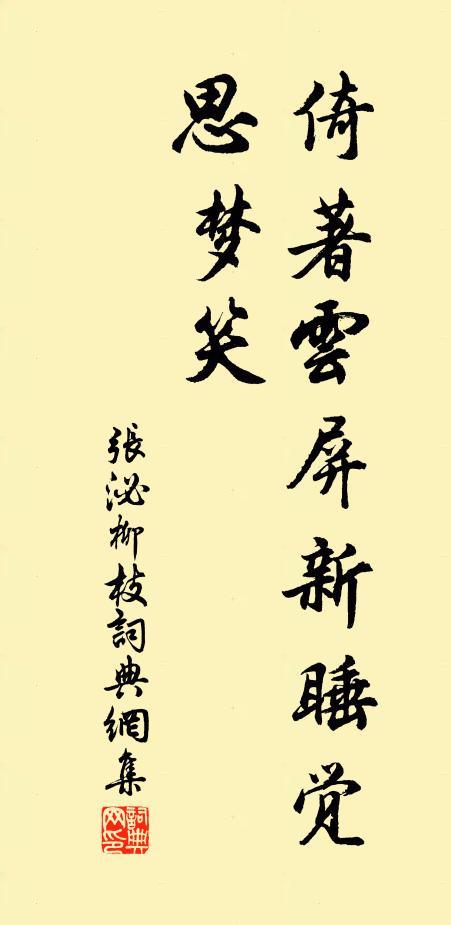 倚著雲屏新睡觉
思梦笑
張泌柳枝詞典網集
詞典网印